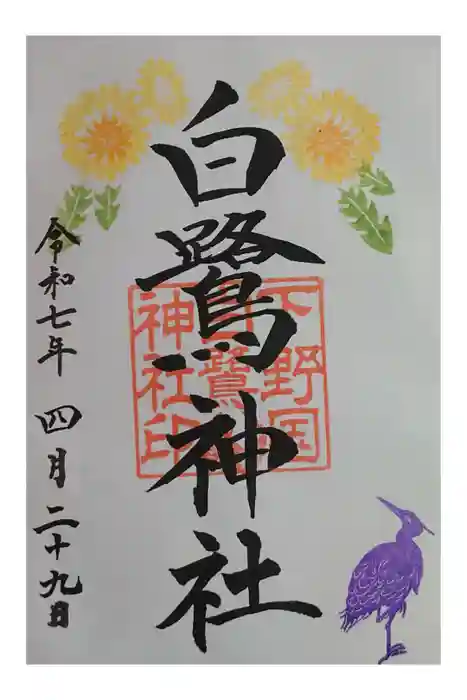 白鷺神社
下野国
白鷺
神社印
令和七年 四月二十九日